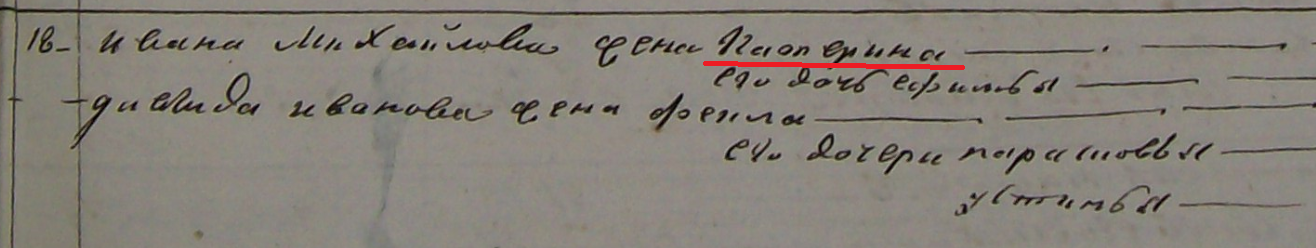 18 - ивана Михайлова жена Катерина
его дочь ефимья
давида иванова жена фекла
его дочери парасковья
устинья